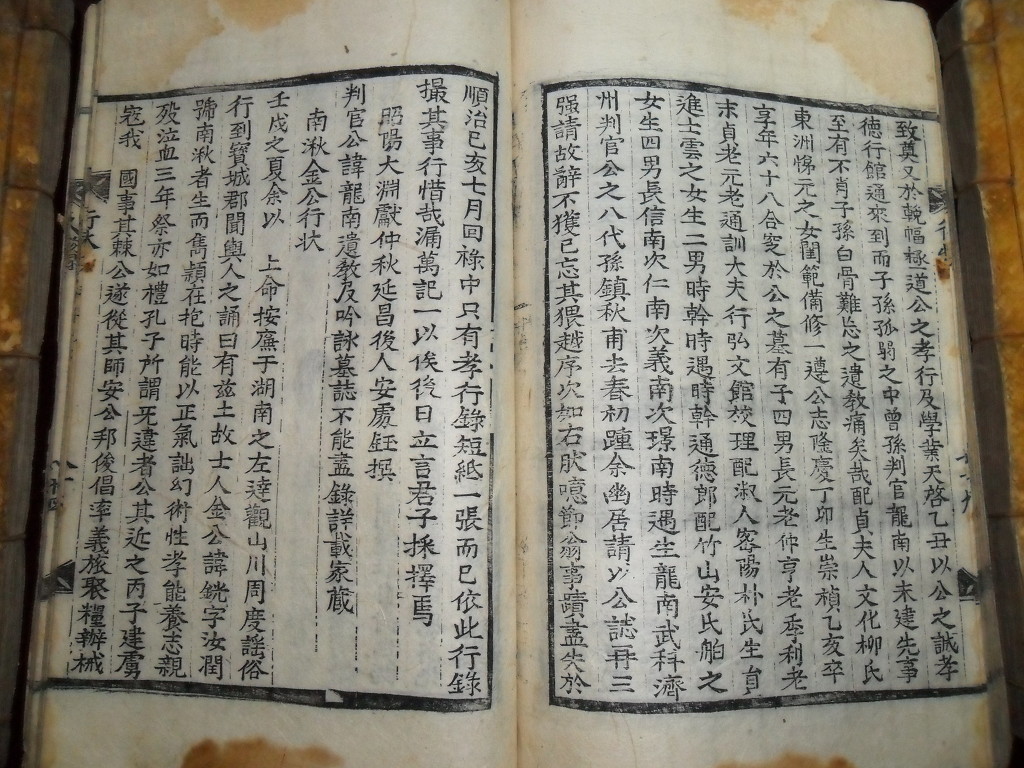 致奠又於輓幅極道公之孝行及學業天啓乙丑以公之誠孝
德行館通來到而子孫孤弱之中曾孫判官龍南以未建先事
至有不肖子孫白骨難忘之遺敎痛矣哉配貞夫人文化柳氏
東洲悌元之女閨範備修一遵公志隆慶丁卯生崇禎乙亥卒
享年六十八合窆於公之墓有子四男長元老仲亨老季利老
末貞老元老通訓大夫行弘文館校理配淑人密陽朴氏生員
進士雲之女生二男時幹時遇時幹通德郎配竹山安氏舶之
女生四男長信南次仁南次義南次璟南時遇生龍南武科濟
州判官公之八代孫鎮秋甫去春初踵余幽居請以公誌再三
强請故辭不獲已忘其猥越序次如右狀噫節翁事蹟盡失於
順治己亥七月回祿中只有孝行錄短紙一張而已依此行錄
撮其事行惜哉漏萬記一以俟後日立言君子採擇焉
昭陽大淵獻仲秋延昌後人安處鈺撰
判官公諱龍南遺敎及吟詠墓誌不能盡錄詳載家藏
南湫金公行狀
壬戌之夏余以 上命按廉于湖南之左達觀山川周度謠俗
行到寶城郡聞輿人之誦曰有玆土故士人金公諱銧字汝潤
號南湫者生而雋頴在抱時能以正氣詘幻術性孝能養志親
歿泣血三年祭亦如禮孔子所謂无違者公其近之丙子建虜
寇我 國事其棘公遂從其師安公邦俊倡率義旅聚糧辦械
行狀